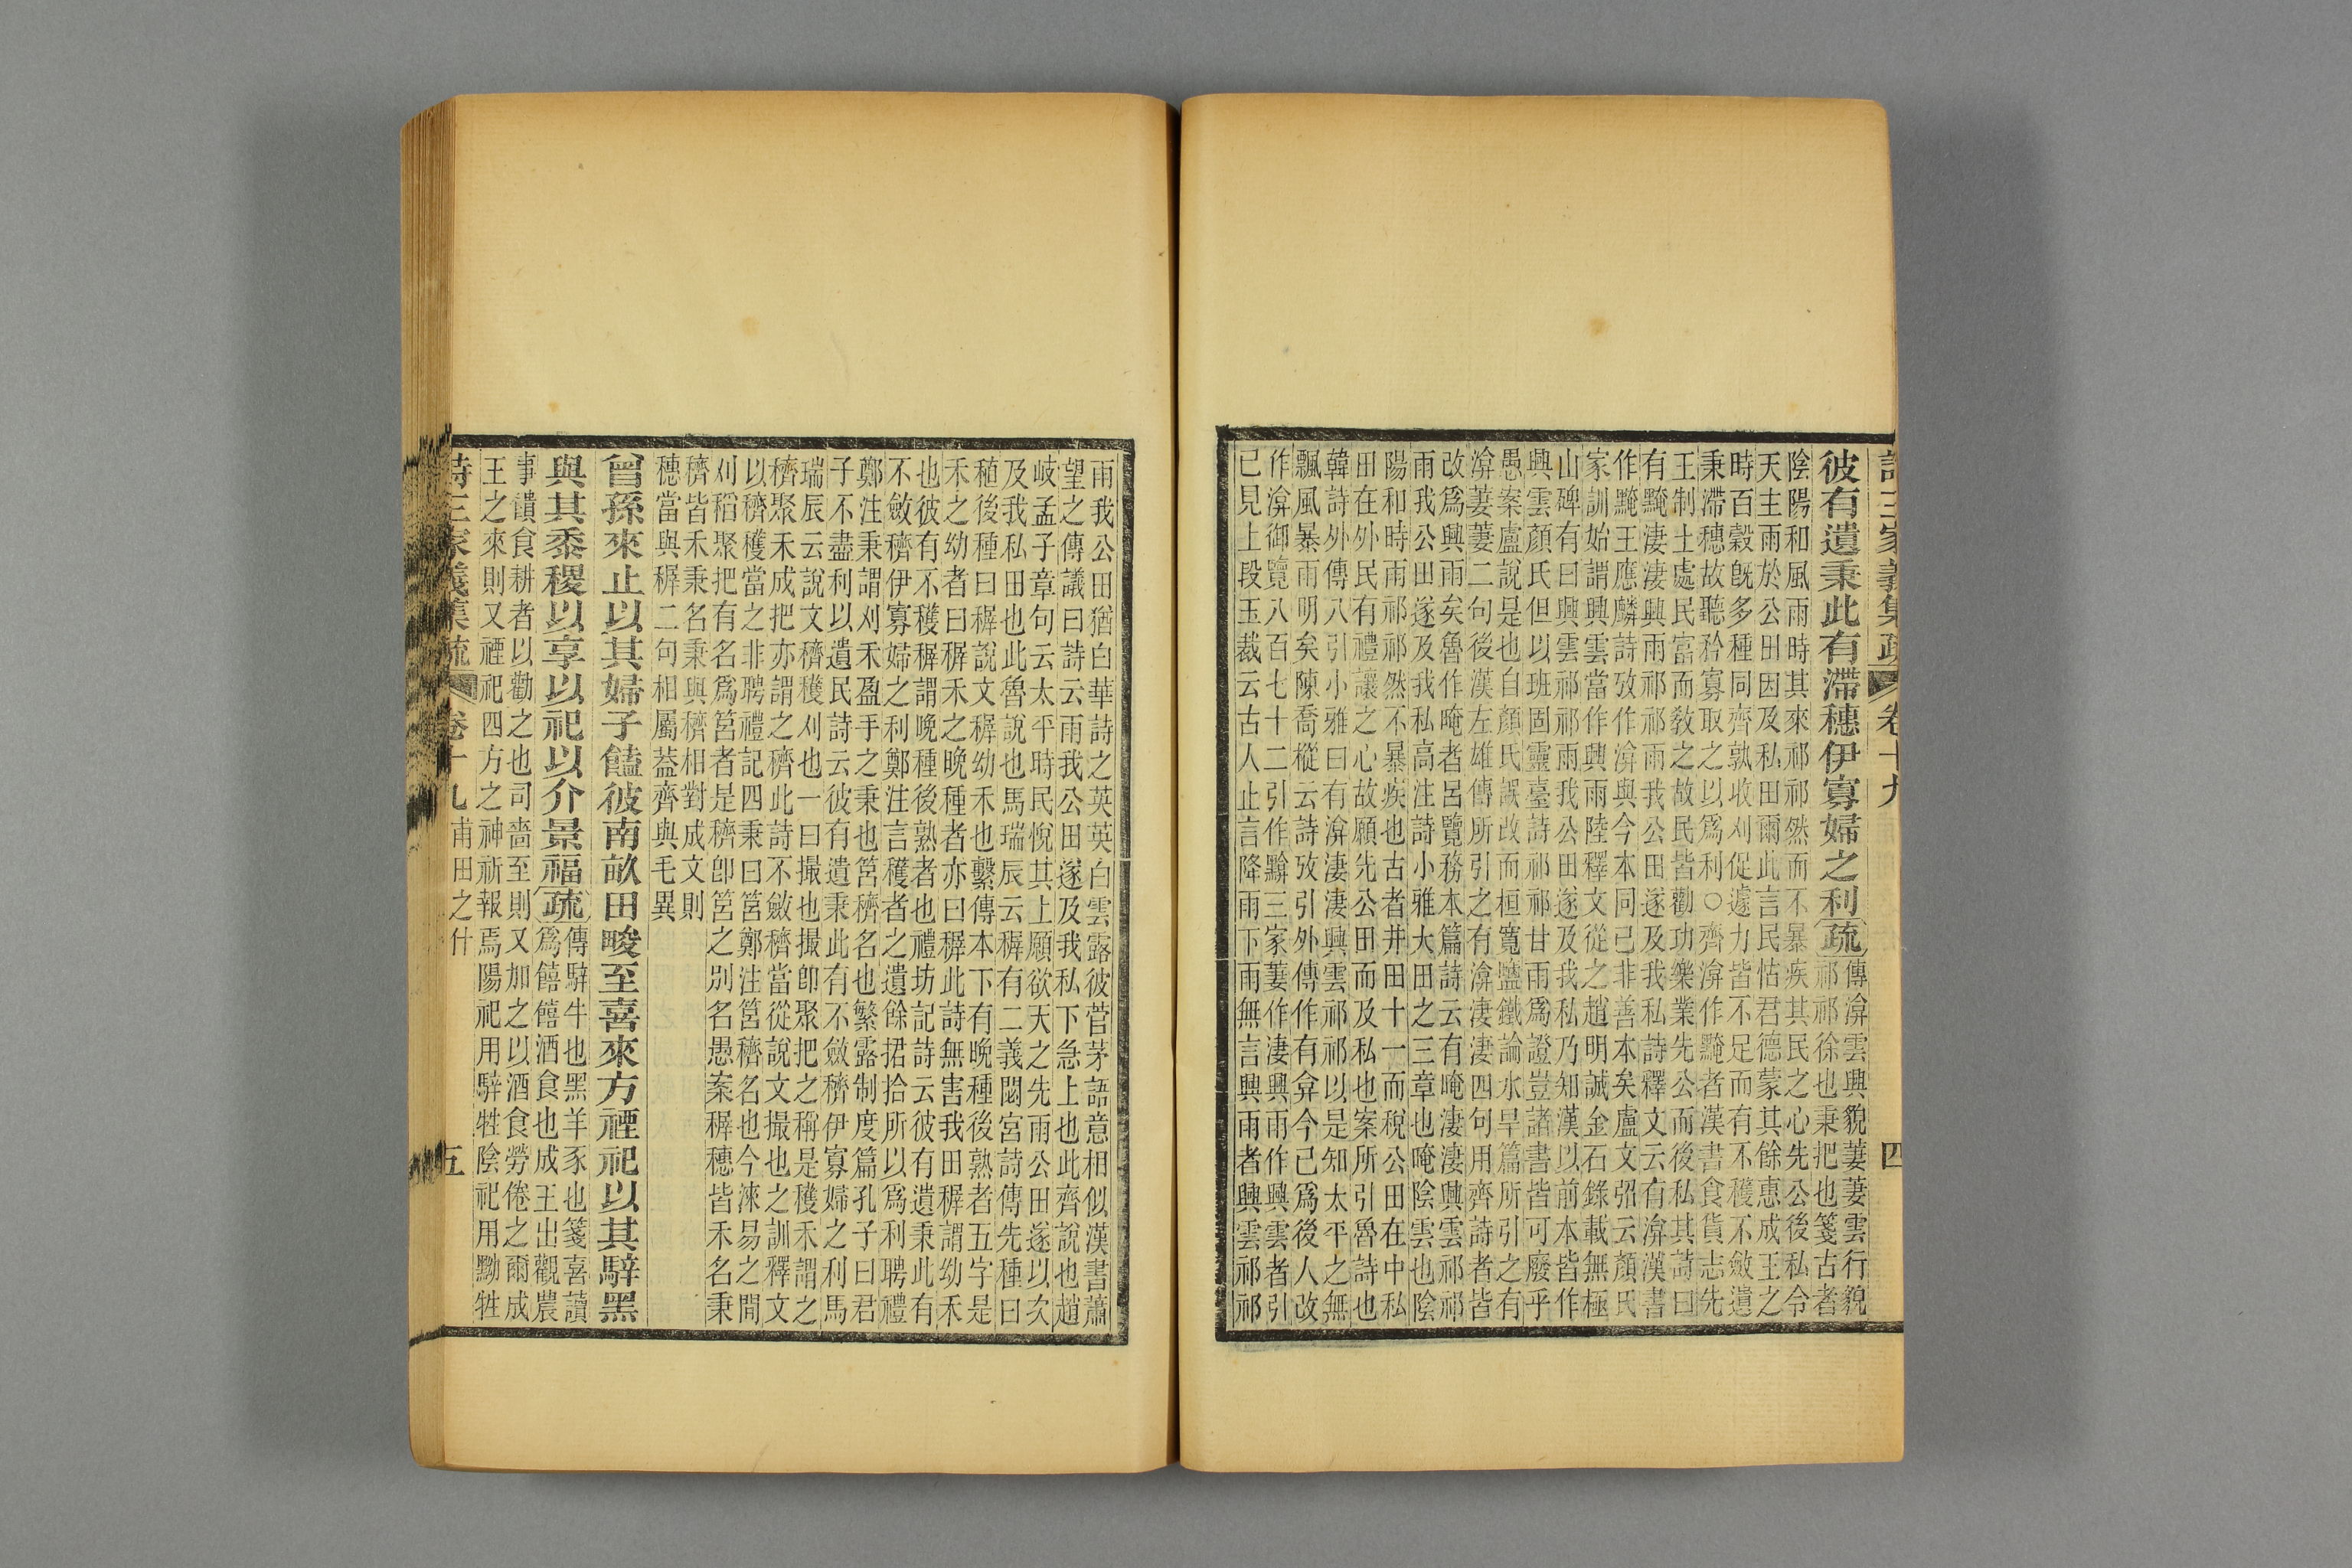 詩三家義集疏　卷十九　四
彼有遺秉此有滯穗伊寡婦之利疏
傳渰雲興貌萋萋雲行貌
祁祁徐也秉把也箋古者
陰陽和風雨時其來祁祁然而不暴疾其民之心先公後私令
天主雨於公田因及私田爾此言民怙君德蒙其餘惠成王之
時百穀既多種同齊孰收刈促遽力皆不足而有不穫不斂遺
秉滯穗故聽矜寡取之以爲利○齊渰作黤者漢書食貨志先
王制土處民富而教之故民皆勸功樂業先公而後私其詩曰
有黤淒淒興雨祁祁雨我公田遂及我私詩釋文云有渰漢書
作黤王應麟詩攷作渰與今本同已非善本矣盧文弨云顏氏
家訓始謂興雲當作興雨陸釋文從之趙明誠金石錄載無極
山碑有曰興雲祁祁雨我公田遂及我私乃知漢以前本皆作
興雲顏氏但以班固靈臺詩祁祁甘雨爲證豈諸書皆可廢乎
愚案盧說是也自顏氏誤改而桓寬鹽鐵論水旱篇所引之有
渰萋萋二句後漢左雄傳所引之有渰淒淒四句用齊詩者皆
改爲興雨矣魯作唵者呂覽務本篇詩云有唵淒淒興雲祁祁
雨我公田遂及我私高注詩小雅大田之三章也唵陰雲也陰
陽和時雨祁祁然不暴疾也古者井田十一而稅公田在中私
田在外民有禮讓之心故願先公田而及私也案所引魯詩也
韓詩外傳八引小雅曰有渰淒淒興雲祁祁以是知太平之無
飄風暴雨明矣陳喬樅云詩攷引外傳作有弇今已爲後人改
作渰御覽八百七十二引作黭三家萋作淒興雨作興雲者引
已見上段玉裁云古人止言降雨下雨無言興雨者興雲祁祁
雨我公田猶白華詩之英英白雲露彼菅茅語意相似漢書蕭
望之傳議曰詩云雨我公田遂及我私下急上也此齊說也趙
岐孟子章句云太平時民悅其上願欲天之先雨公田遂以次
及我私田也此魯說也馬瑞辰云稺有二義閟宮詩傳先種曰
稙後種曰稺說文稺幼禾也繫傳本下有晚種後熟者五字是
禾之幼者曰稺禾之晚種者亦曰稺此詩無害我田稺謂幼禾
也彼有不穫稺謂晚種後熟者也禮坊記詩云彼有遺秉此有
不斂穧伊寡婦之利鄭注言穫者之遺餘捃拾所以爲利聘禮
鄭注秉謂刈禾盈手之秉也筥穧名也繁露制度篇孔子曰君
子不盡利以遺民詩云彼有遺秉此有不斂穧伊寡婦之利馬
瑞辰云說文穧穫刈也一曰撮也撮卽聚把之稱是穫禾謂之
穧聚禾成把亦謂之穧此詩不斂穧當從說文撮也之訓釋文
以穧穫當之非聘禮記四秉曰筥鄭注筥穧名也今淶易之閒
刈稻聚把有名爲筥者是穧卽筥之別名愚案稺穗皆禾名秉
穧皆禾秉名秉與穧相對成文則
穗當與稺二句相屬葢齊與毛異
曾孫來止以其婦子饁彼南畝田畯至喜來方禋祀以其騂黑
與其黍稷以享以祀以介景福疏
傳騂牛也黑羊豕也箋喜讀
爲饎饎酒食也成王出觀農
事饋食耕者以勸之也司嗇至則又加之以酒食勞倦之爾成
王之來則又禋祀四方之神祈報焉陽祀用騂牲陰祀用黝牲
詩三家義集疏　卷十九　甫田之什　五